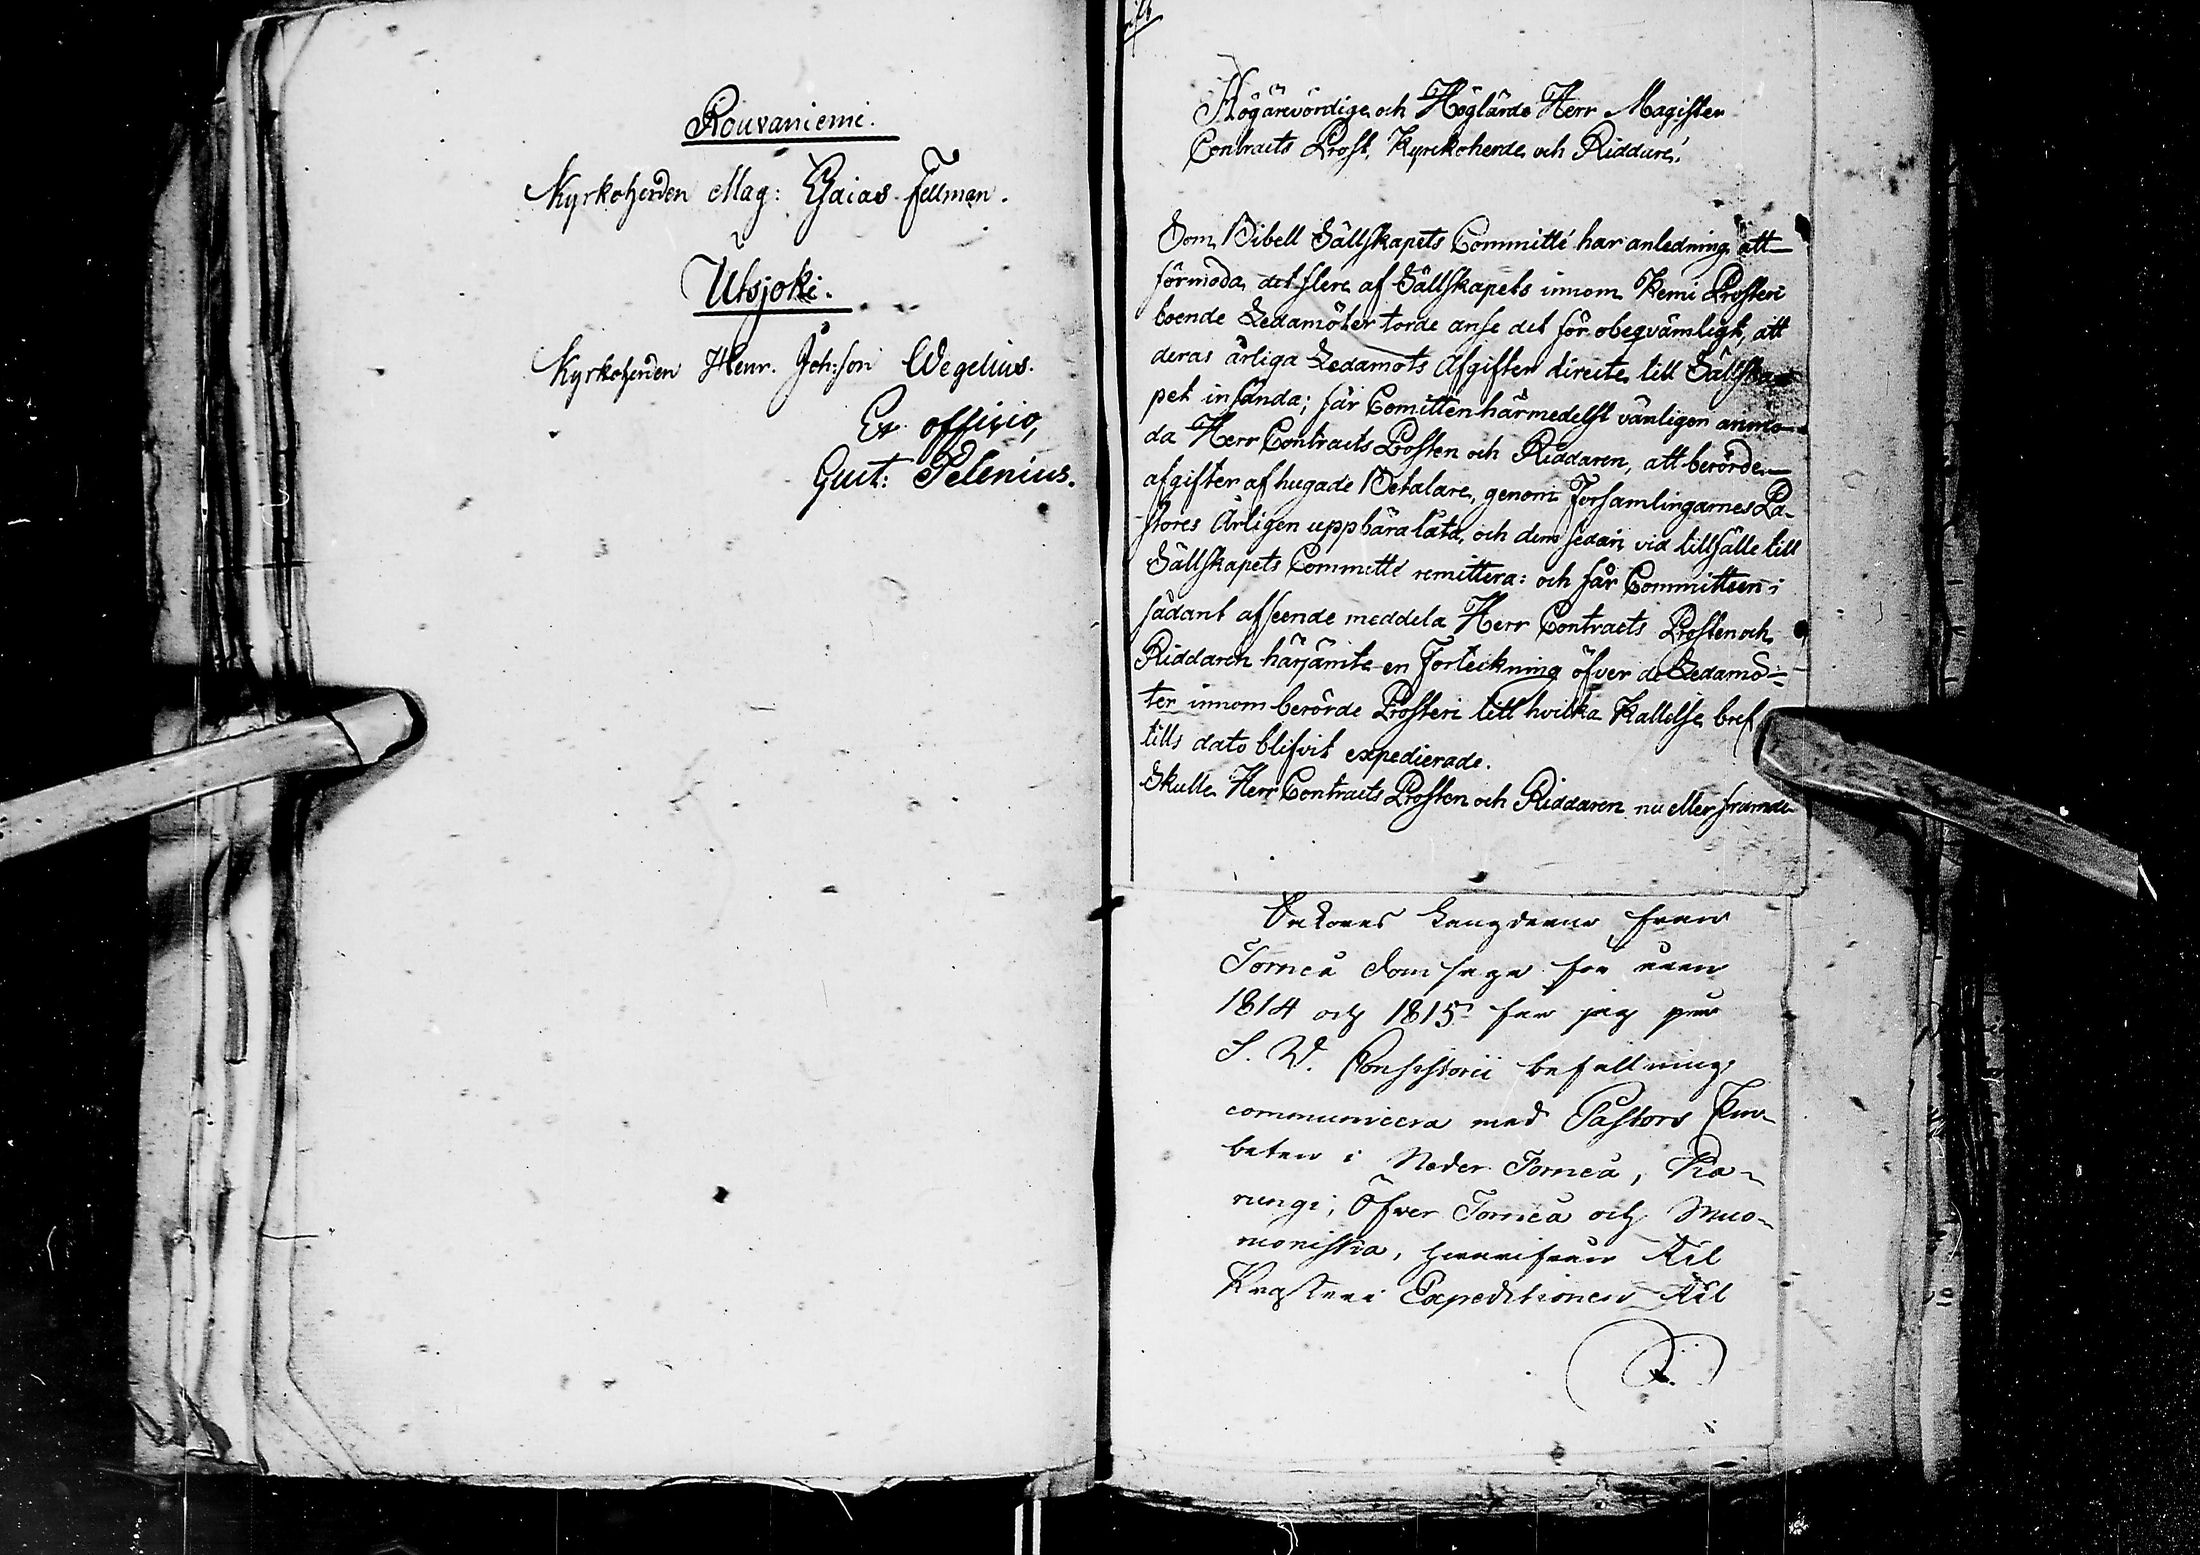 Rouvaniemi.
Kyrkoherden Mag: Esaias Fellman.
Utsjoki.
Kyrkoherden Henr. Joh:son Wegelius.
Ex officio,
Gust: Pelenius.
Högärevördige och Höglärde Herr Magister
Contracts Prost, Kyrckoherde och Riddare!
Som Bibell Sällskapets Committé har anledning att
förmoda, det flere af Sällskapets innom Kemi Prosteri
boende Ledamöter torde anse det för obeqvämligt, att
deras årliga Ledamots Afgifter directe till Sällska-
pet insända; får Comitten härmedelst vänligen anmo-
da Herr Contracts Prosten och Riddaren, att berörde
afgifter af hugade Betalare, genom Församlingarnes Pa-
stores Årligen uppbära låta, och dem sedan vid tillfälle till
Sällskapets Committé remittera: och får Committeen i
sådant afseende meddela Herr Contracts Prosten och
Riddaren härjämte en Förteckning öfver de Ledamö-
ter innom berörde Prosteri till hvilka Kallelse bref
tills dato blifvit expedierade.
Skulle Herr Contracts Prosten och Riddaren nu eller framde-
Saköres Längderne från
Torneå Domsaga för åren
1814 och 1815 har jag på
S. V. Consistorii befallning
communicera med Pastors Em-
beten i Neder Torneå, Ka-
rungi, Öfver Torneå och Muo-
nioniska, hvarifrån till
Prosteri Expeditionen till